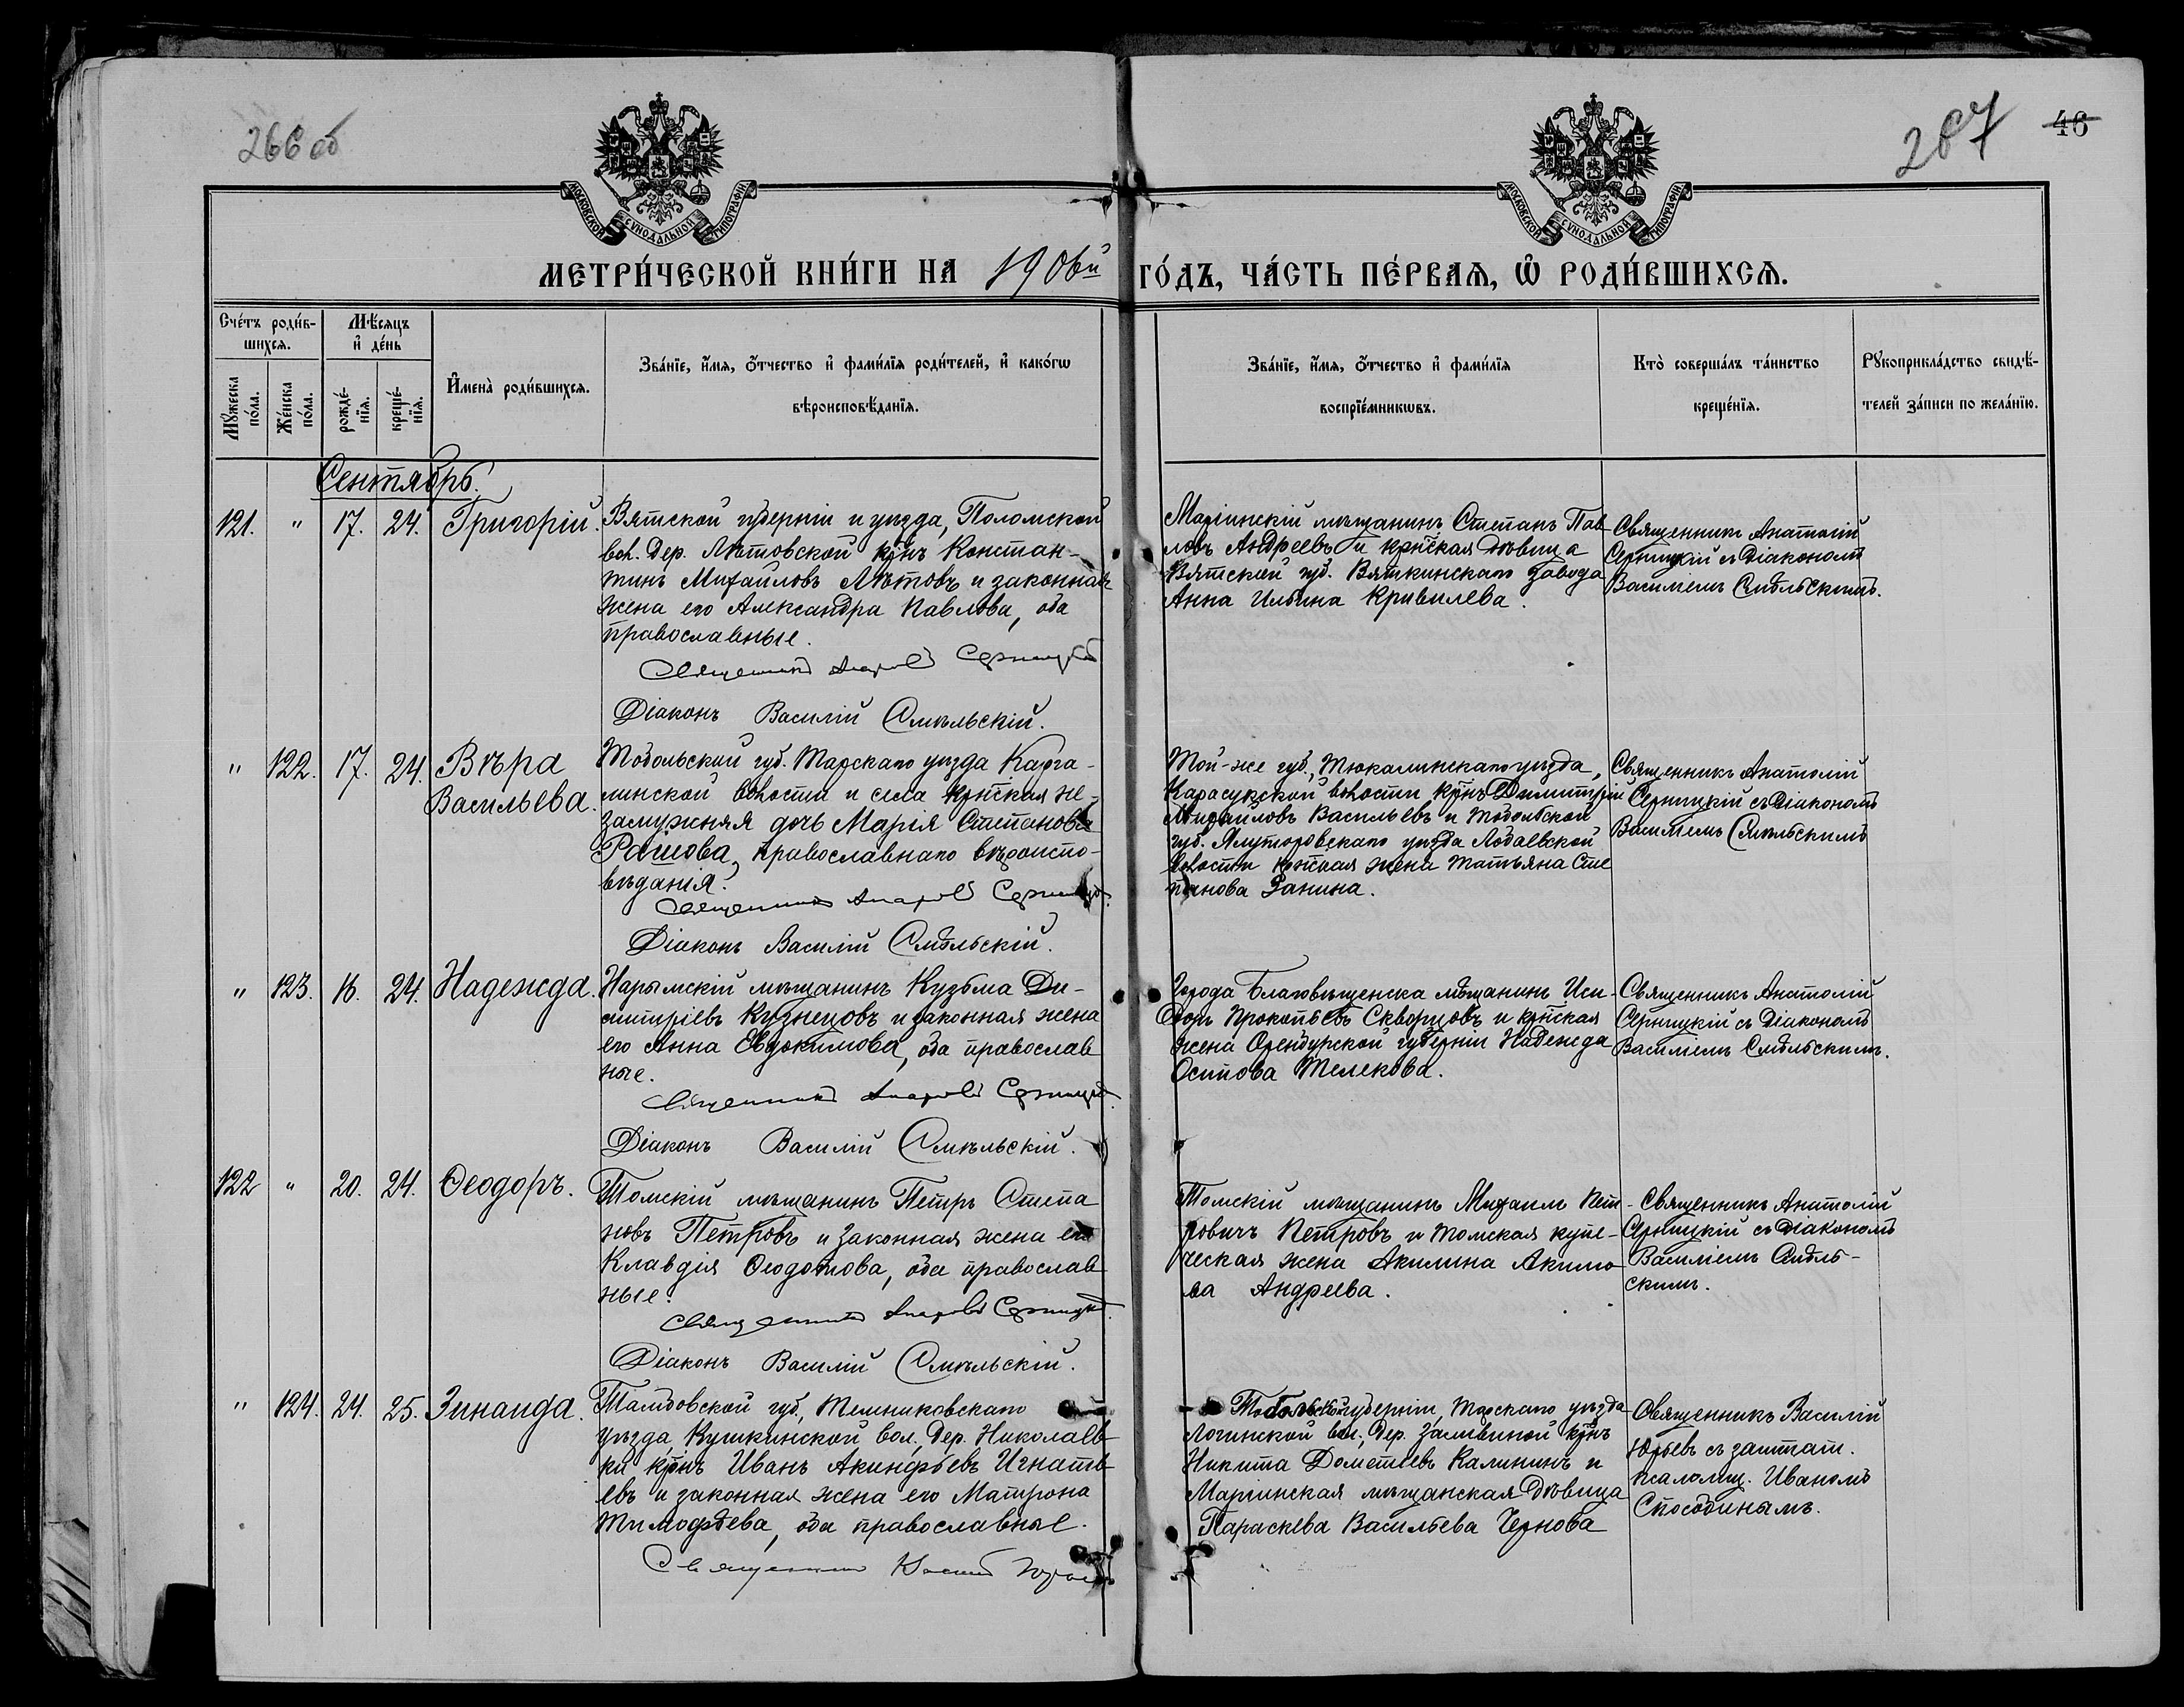 266 об
267
46
МОСКОВСКОЙ СѴНОДАЛЬНОЙ ТИПОГРАФІИ
МОСКОВСКОЙ СѴНОДАЛЬНОЙ ТИПОГРАФІИ
МЕТРИ́ЧЕСКОЙ КНИ́ГИ НА 1906й ГО́ДЪ, ЧА́СТЬ ПЕ́РВАЯ, Ѡ҆ РОДИ́ВШИХСЯ.
Сче́тъ роди́в-
шихся.
Мѣ́сяцъ
и҆ де́нь
Мꙋжеска
по́ла.
Же́нска
по́ла.
рожде́-
нїя.
креще́-
нїя.
И҆мена̀ роди́вшихся.
Зва́нїе, и҆́мя, о҆́тчество и҆ фами́лїя роди́телей, и҆ како́гѡ
вѣроисповѣ́данїя.
Зва́нїе, и҆́мя, о҆́тчество и҆ фами́лїя
воспрїе́мникѡвъ.
Кто̀ соверша́лъ та́инство
креще́нїя.
Рꙋкоприкла́дство свидѣ́-
телей за́писи по жела́нїю.
Сентябрь.
121. " 17. 24. Григорій.
Вятской губерніи и уѣзда, Поломской
вол. Дер. Лѣтовской кр̃нъ Констан-
тинъ Михаиловъ Лѣтовъ и законная
жена его Александра Павлова, оба
православные.
Священникъ Анатолій Серницкій
Діаконъ Василій Смѣльскій.
Маріинскій мѣщанинъ Степанъ Пав
ловъ Андреевъ и крт̃ская дѣвица
Вятской губ. Вяткинскаго завода
Анна Ильина Кривилева.
Священникъ Анатолій
Серницкій съ Діакономъ
Василіемъ Смѣльскимъ.
" 122. 17. 24. Вѣра
Васильева.
Тобольской губ. Тарскаго уѣзда Карга-
линской волости и села крт̃ская не-
замужняя дочь Марія Степанова
православнаго вѣроиспо-
вѣданія.
Священникъ Анатолій Серницкій.
Діаконъ Василій Смѣльскій.
Той-же губ., Тюкалинскаго уѣзда,
Карасукской волости кр̃нъ Димитрій
Михайловъ Васильевъ и Тобольской
губ. Ялуторовскаго уѣзда
волости крт̃ская жена Татьяна Сте
панова Ранина.
Священникъ Анатолій
Серницкій съ Діакономъ
Василіемъ Смѣльскимъ
" 123. 16. 24. Надежда.
Нарымскій мѣщанинъ Кузьма Ди-
митріевъ Кузнецовъ и законная жена
его Анна Евдокимова, оба православ
ные.
Священникъ Анатолій Серницкій.
Діаконъ Василій Смѣльскій.
Города Благовѣщенска мѣщанинъ Иси-
доръ Прокопьевъ Скворцовъ и крт̃ская
жена Оренбурской губерніи Надежда
Осипова Телекова.
Священникъ Анатолій
Серницкій съ Діакономъ
Василіемъ Смѣльскимъ.
122 " 20. 24. Ѳеодоръ.
Томскій мѣщанинъ Петръ Степа
новъ Петровъ и законная жена его
Клавдія Ѳеодотова, оба православ
ные.
Священникъ Анатолій Серницкій.
Діаконъ Василій Смѣльскій.
Томскій мѣщанинъ Михаилъ Пет-
ровичъ Петровъ и томская купе-
ческая жена Акилина Акимо
ва Андреева.
Священникъ Анатолій
Серницкій съ Діакономъ
Василіемъ Смѣль-
скимъ.
" 124. 24. 25. Зинаида.
Тамбовской губ., Темниковскаго
уѣзда, Кушкинской вол., Дер. Николаев
ки кр̃нъ Иванъ Акинфьевъ Игнать
евъ и законная жена его Матрона
Тимофѣева, оба православные.
Священникъ Василій Юрьевъ
Тобольской губерніи, Тарскаго уѣзда
Логинской вол., Дер. Заливиной кр̃нъ
Никита Дометьевъ Калининъ и
Маріинская мѣщанская дѣвица
Параскева Васильева Чернова
Священникъ Василій
Юрьевъ съ заштат.
псаломщ. Иваномъ
Способинымъ.